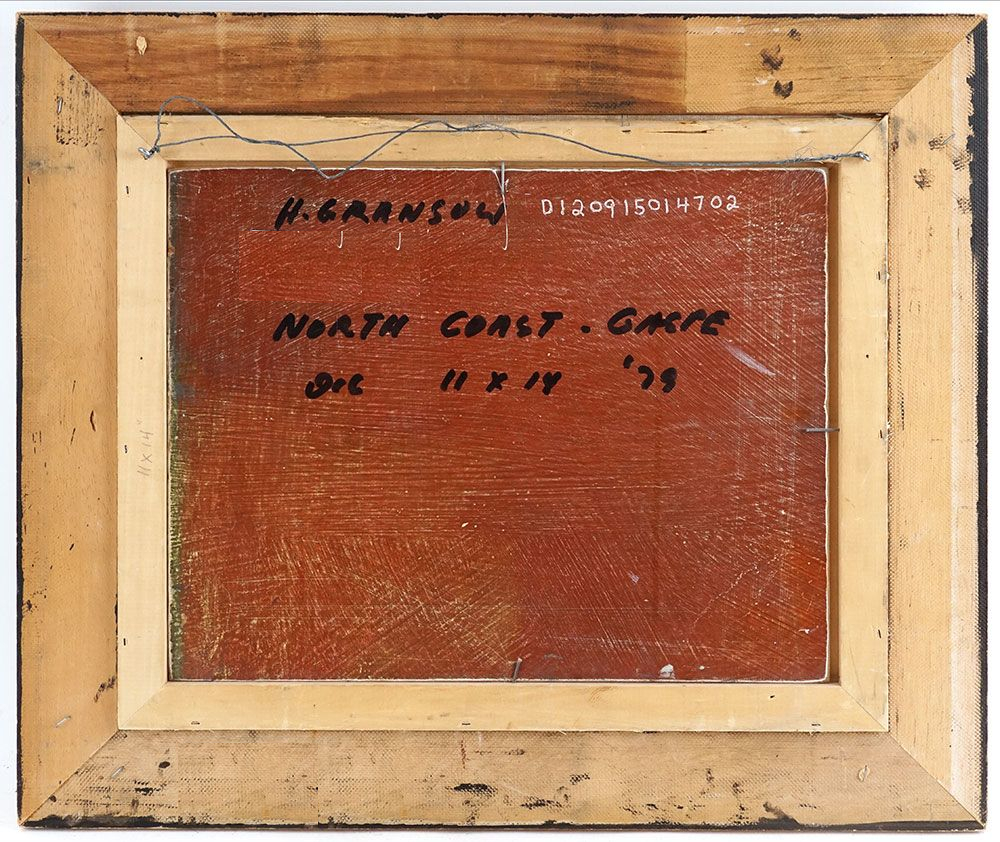 H. GRANSOW D120915014702
NORTH COAST. GASPE
11 x 14 '79
11 x 14"